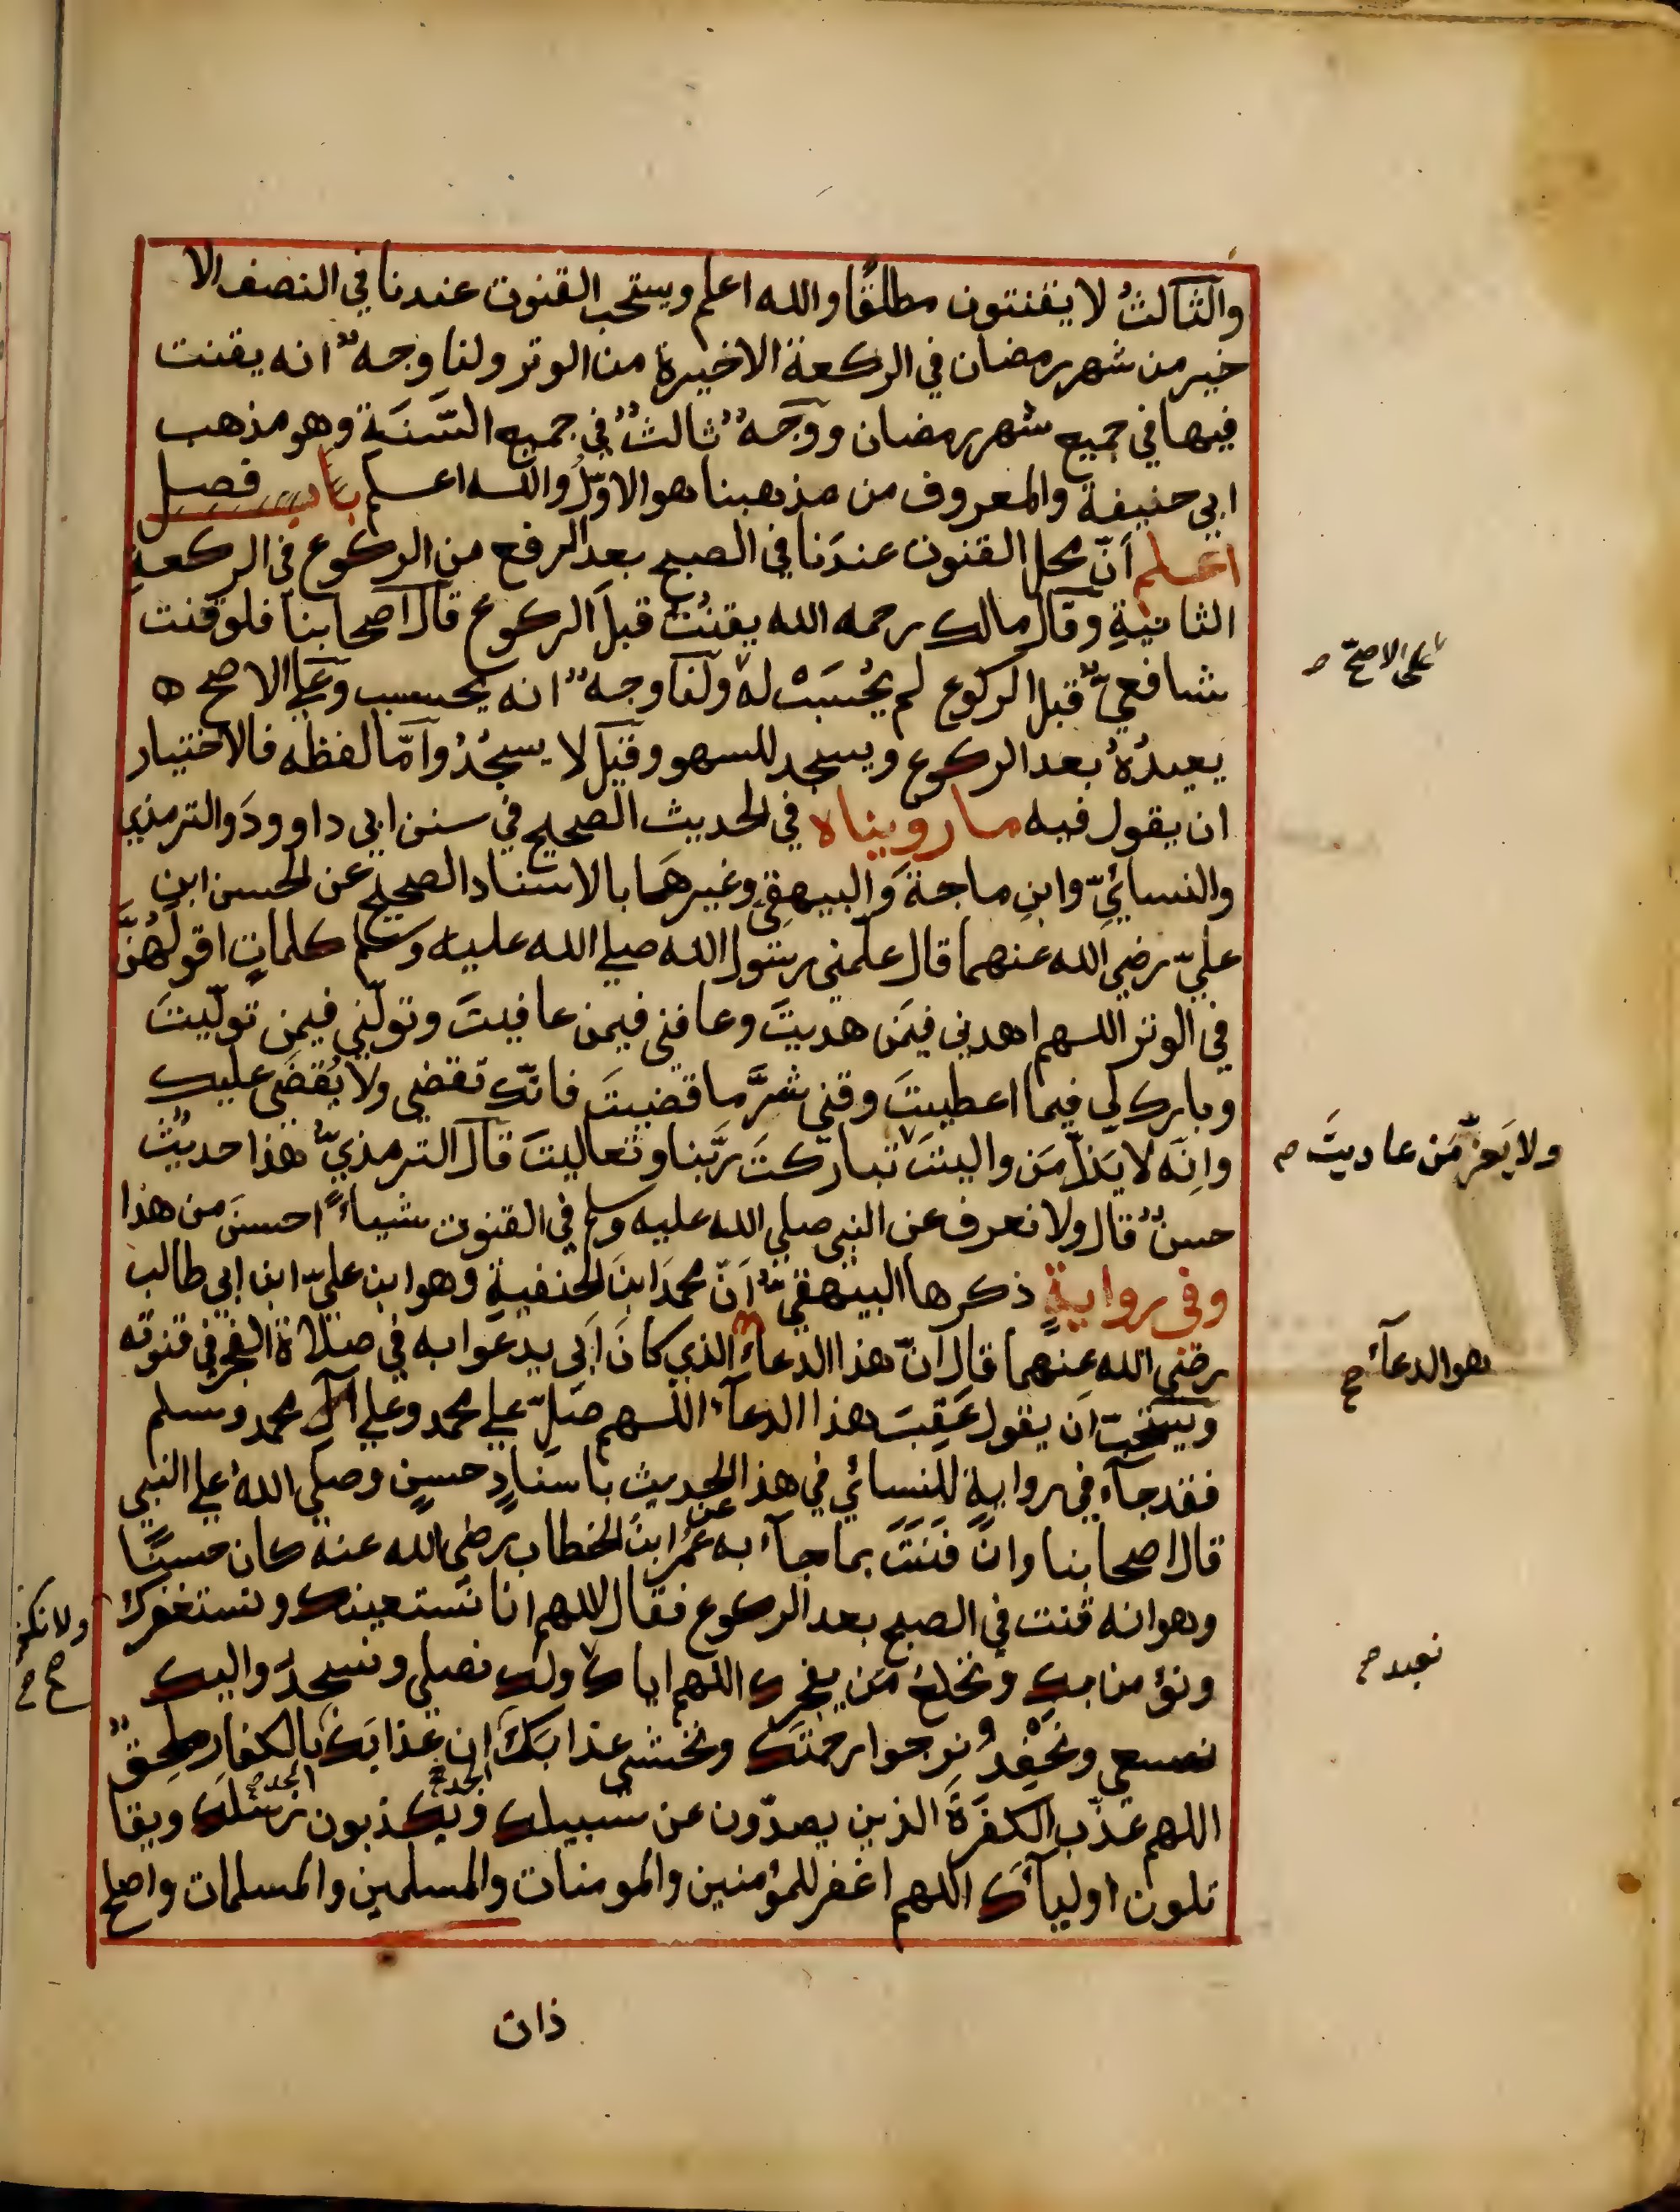 والثالثُ لا يقنتون مطلقًا والله اعلم ويستحب القنوت عندنا في النصف الا
خير من شهر رمضان في الركعة الاخيرة من الوتر ولنا وجهٌ انه يقنت
فيها في جميع شهر رمضان ووَجهٌ ثالثٌ في جميع السَّنَة وهو مذهب
ابي حنيفة والمعروف من مذهبنا هو الاوّلُ والله اعلم باب فصل
اعلم اَنّ محل القنوت عندَنا في الصبح بعد الرفع من الركوع في الركعةِ
الثانيةِ وقال مالك رحمه الله يقنُت قبلَ الركوع قال اصحابنا فلو قنت
شافعيٌّ قبل الركوع لم يُحْسَبْ له ولنا وجهٌ انه يحسب وعَلي الاصح ه
على الاصحّ م
يعيدُهُ بعد الركوع ويسجد للسهو وقيل لا يسجُدُ وامّا لفظه فالاختيار
ان يقول فيه ما رويناه في الحديث الصحيح في سنن ابي داوودَ والترمذي
والنسائيِّ وابنِ ماجةَ والبيهقي وغيرهَما بالاسناد الصحيح عن الحسن ابن
عليّ رضي الله عنهما قال علّمني رسول الله صلي الله عليه وسلم كلماتٍ اقولُهُنَّ
في الوتر اللهم اهدني فيمَن هديتَ وعافني فيمن عافيتَ وتولّني فيمن تولّيتَ
وبارك لي فيما اعطيتَ وقني شرَّ ما قضيتَ فانّك تقضي ولا يُقضَى عليك
وانّه لا يَذلّ مَن واليتَ تباركتَ ربَّنا وتعاليتَ قال الترمذيُّ هذا حديثٌ
ولا يَعزّ مَن عاديتَ م
حسنٌ قال ولا نعرف عن النبي صلي الله عليه وسلم في القنوت شيئاً احسنَ من هذا
وفي روايةٍ ذكرها البيهقيُّ اَنّ محمدَ ابنَ الحنفيةِ وهو ابن عليّ ابن ابي طالب
رضي الله عنهما قال انّ هذا الدعاءَ الذي كانَ اَبي يدعوا به في صلاة الفجر في قنوته
هو الدعاءُ صح
ويستحبّ ان يقول عَقِبَ هذا الدعآء اللهم صَلِّ علي محمد وعلي آل محمد وسلم
فقد جآء في روايةٍ للنسائي في هذا الحديث باسنادٍ حسنٍ وصلي اللهُ علي النبي
قال اصحابنا وان قَنَتَ بما جآء به عن عُمَرُ ابنُ الخطاب رضي الله عنه كان حسنًا
وهو انه قنت في الصبح بعد الركوع فقال اللهم انا نستعينك ونستغفرك
ولا نكفرك صح م
ونؤمن بك ونخلع مَن يفجرك اللهم اياك ولك نصلي ونسجدُ واليك
نعبد م
نسعي ونَحْفِدُ ونرجوا رحمتك ونخشى عذابَكَ ان عذابَكَ بالكفار ملحِقٌ
اللهم عذِّب الكفَرَةَ الذين يصدّون عن سبيلك ويكذبون رسلك ويقا
تلون اوليآئك اللهم اغفر للمؤمنين والمومنات والمسلمين والمسلمات واصلح
ذات